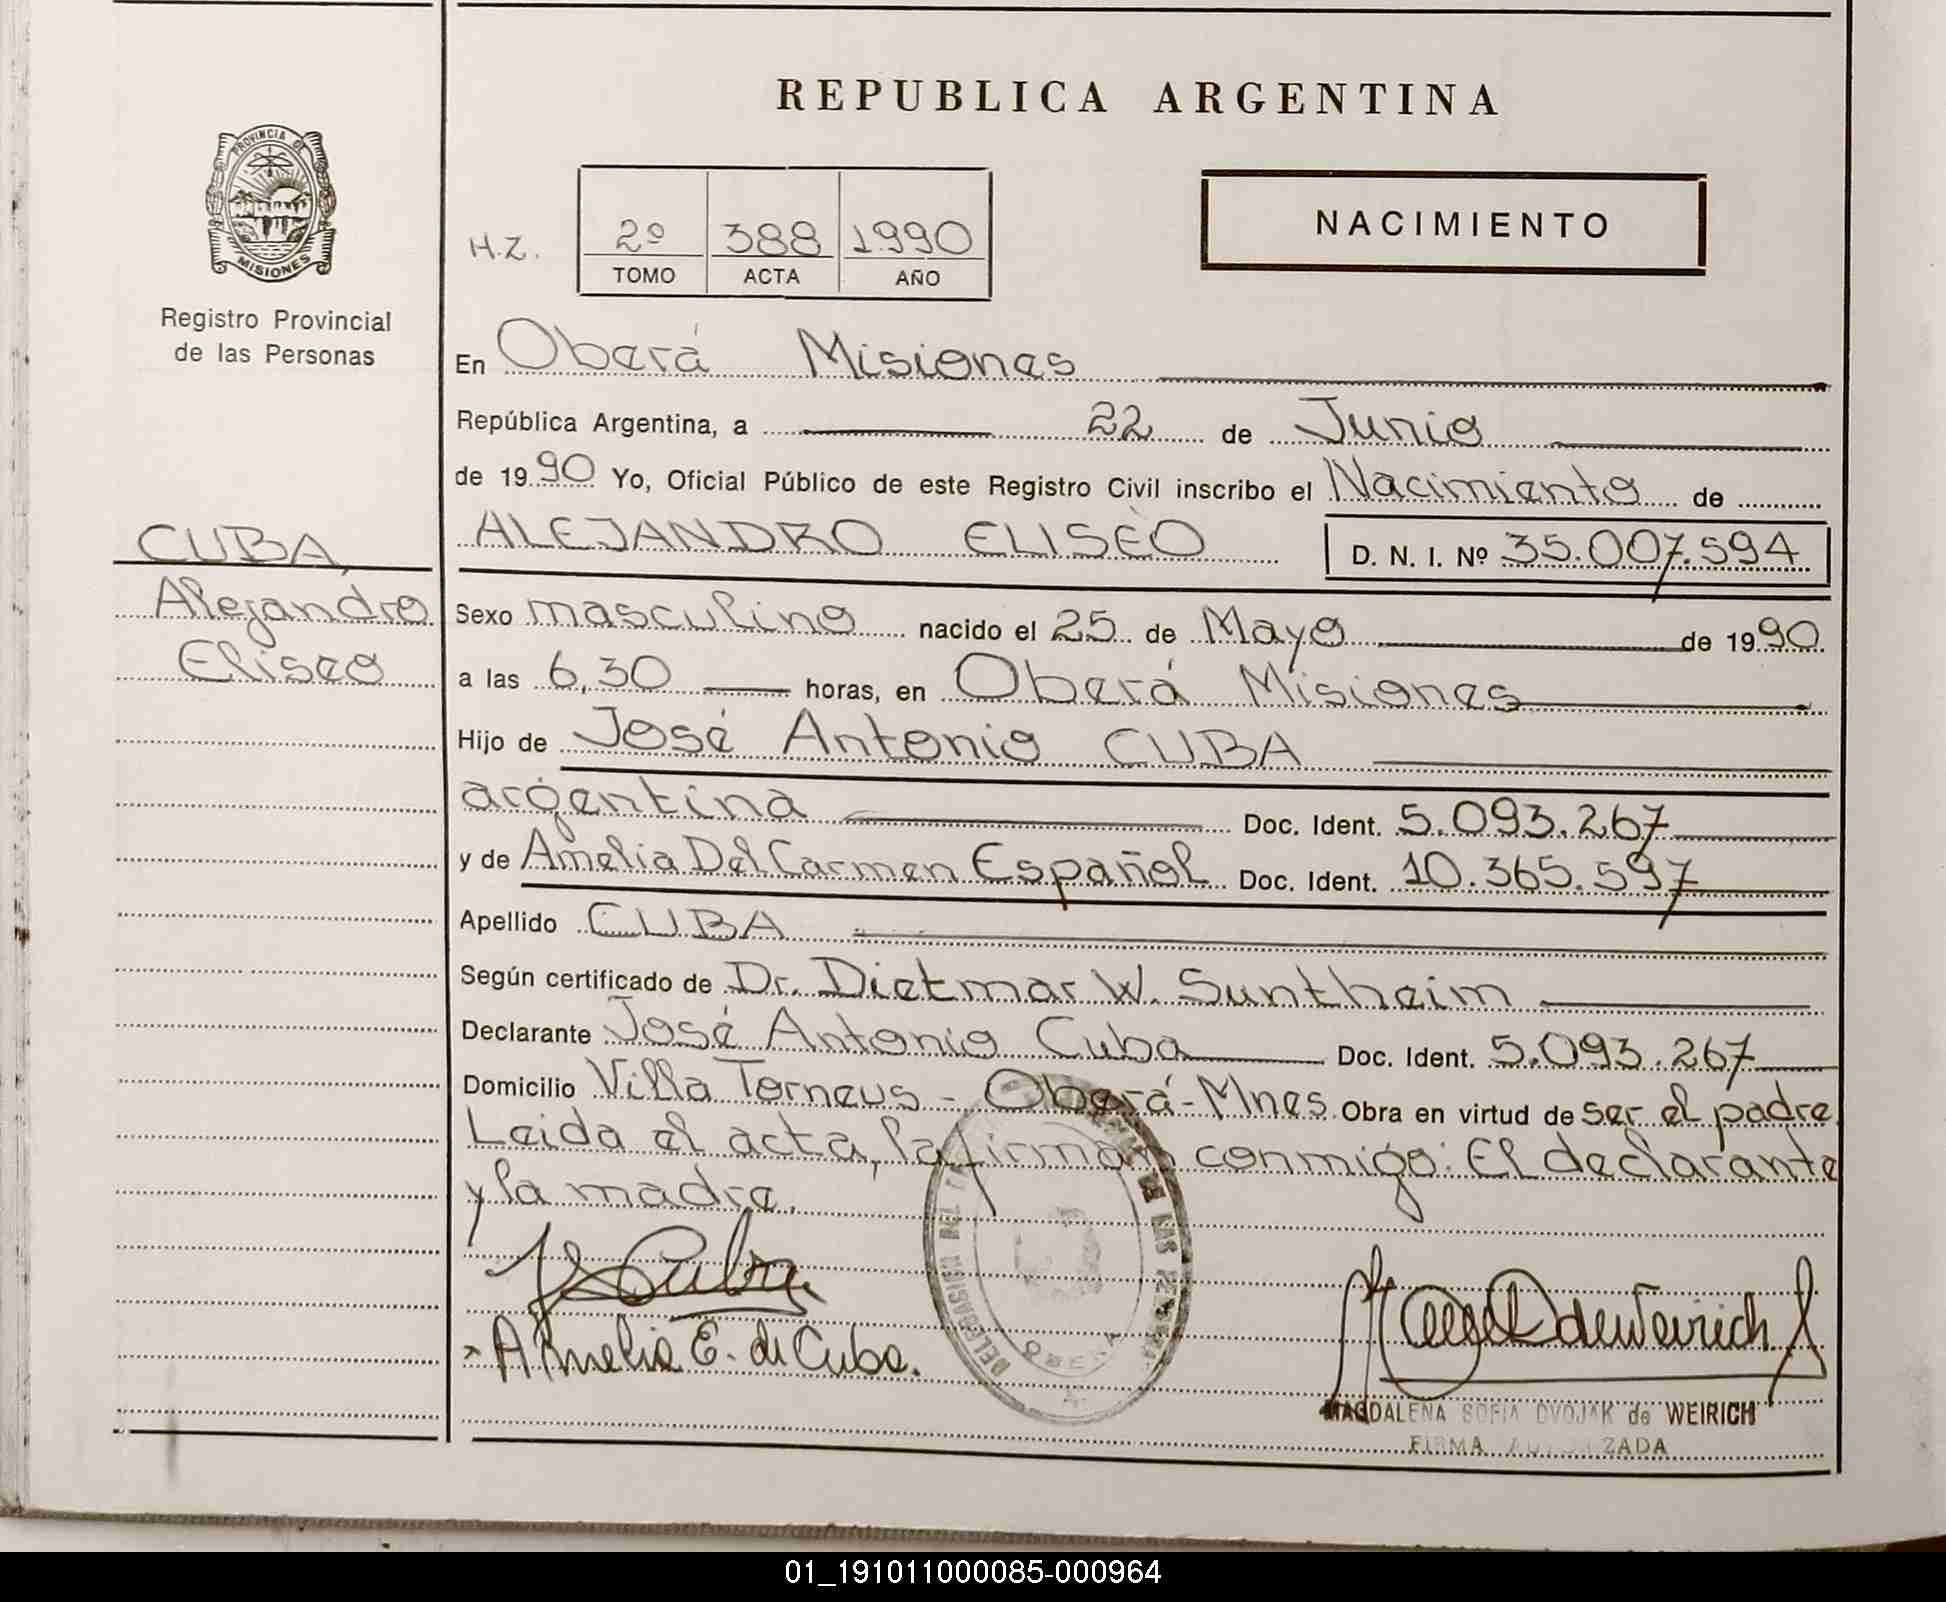 REPUBLICA ARGENTINA
PROVINCIA DE
MISIONES
Registro Provincial
de las Personas
H.Z.
2º 388 1990
TOMO ACTA AÑO
NACIMIENTO
CUBA,
Alejandro
Eliseo
En Oberá Misiones
República Argentina, a 22 de Junio
de 1990 Yo, Oficial Público de este Registro Civil inscribo el Nacimiento de
ALEJANDRO ELISEO D. N. I. Nº 35.007.594
Sexo masculino nacido el 25 de Mayo de 1990
a las 6,30 horas, en Oberá Misiones
Hijo de José Antonio CUBA
argentina Doc. Ident. 5.093.267
y de Amelia Del Carmen Español Doc. Ident. 10.365.597
Apellido CUBA
Según certificado de Dr. Dietmar W. Suntheim
Declarante José Antonio Cuba Doc. Ident. 5.093.267
Domicilio Villa Torneus - Oberá - Mnes Obra en virtud de ser el padre
Leida el acta, la firman conmigo: El declarante
y la madre.
Cuba
Amelia E. de Cuba.
DELEGACION DEL DE LAS
OBERA
de Weirich
MAGDALENA SOFIA DVOJAK de WEIRICH
FIRMA AUTORIZADA
01_191011000085-000964